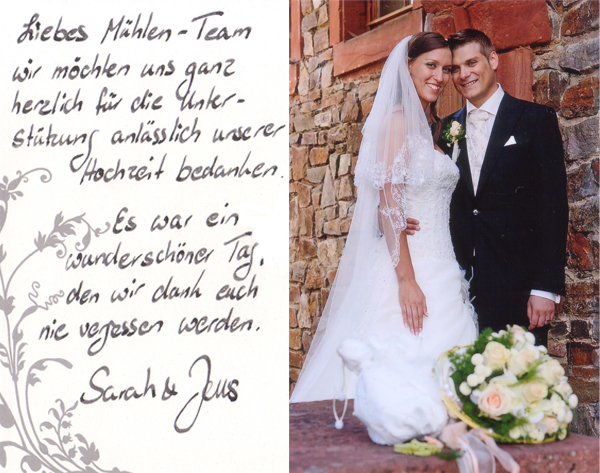 Liebes Mühlen-Team
wir möchten uns ganz
herzlich für die Unter-
stützung anlässlich unserer
Hochzeit bedanken.
Es war ein
wunderschöner Tag,
den wir dank euch
nie vergessen werden.
Sarah & Jens